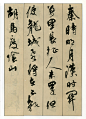 秦時明月漢時關
萬里長征人未還但
使龍城飛將在不教
胡馬度陰山